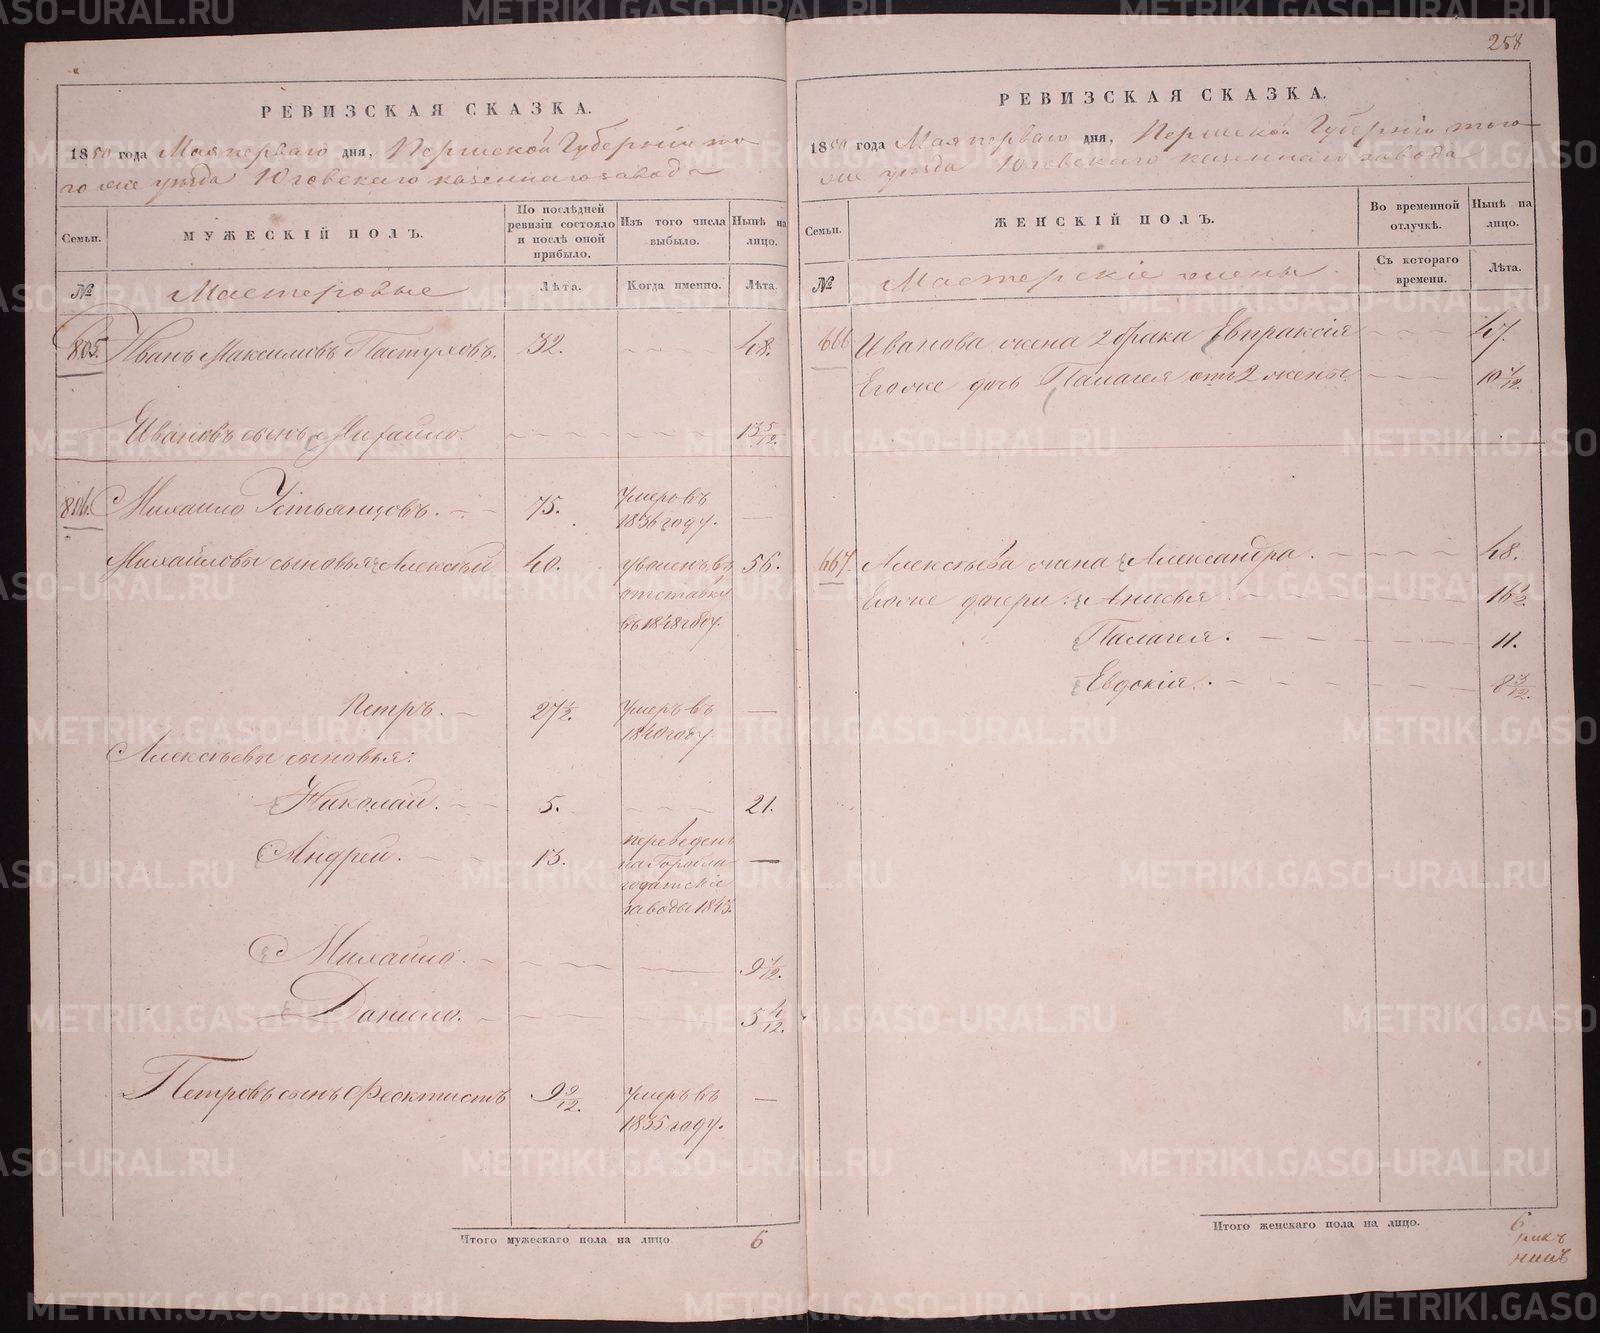 РЕВИЗСКАЯ СКАЗКА.
1850 года Мая перваго дня, Пермской Губернiи то
го же уѣзда Юговскаго казеннаго завода
Семьи.
МУЖЕСКIЙ ПОЛЪ.
По послѣдней
ревизiи состояло
и послѣ оной
прибыло.
Изъ того числа
выбыло.
Нынѣ на
лицо.
№
Мастеровые
Лѣта.
Когда именно.
Лѣта.
805. Иванъ Максимовъ Пастуховъ. 32. 48.
Ивановъ сынъ Михайло. 13 5/12.
806. Михайло Устьянцовъ. 75. Умеръ въ
1836 году.
Михайловы сыновья: Алексѣй 40. уволенъ въ 56.
отставку
въ 1848 году.
Петръ. 27 1/2. Умеръ въ
1840 году
Алексѣевы сыновья:
Николай. 5. 21.
Андрей. 13. переведенъ
на Горобла
годатскiе
заводы 1843.
Михайло. 9 7/12.
Данило. 5 4/12.
Петровъ сынъ Феоктистъ 9 9/12. Умеръ въ
1835 году.
Итого мужескаго пола на лицо 6
258
РЕВИЗСКАЯ СКАЗКА.
1850 года Мая перваго дня, Пермской Губернiи того
же уѣзда Юговскаго казеннаго завода
Семьи.
ЖЕНСКIЙ ПОЛЪ.
Во временной
отлучкѣ.
Нынѣ на
лицо.
№
Мастерскiе жены.
Съ котораго
времени.
Лѣта.
666 Иванова жена 2 брака Евпраксiя 47.
Его же дочь Палагея отъ 2 жены. 10 7/12.
667. Алексѣева жена Александра. 48.
Его же дочери: Анисья 16 1/2.
Палагея. 11.
Евдокiя. 8 3/12.
Итого женскаго пола на лицо. 6